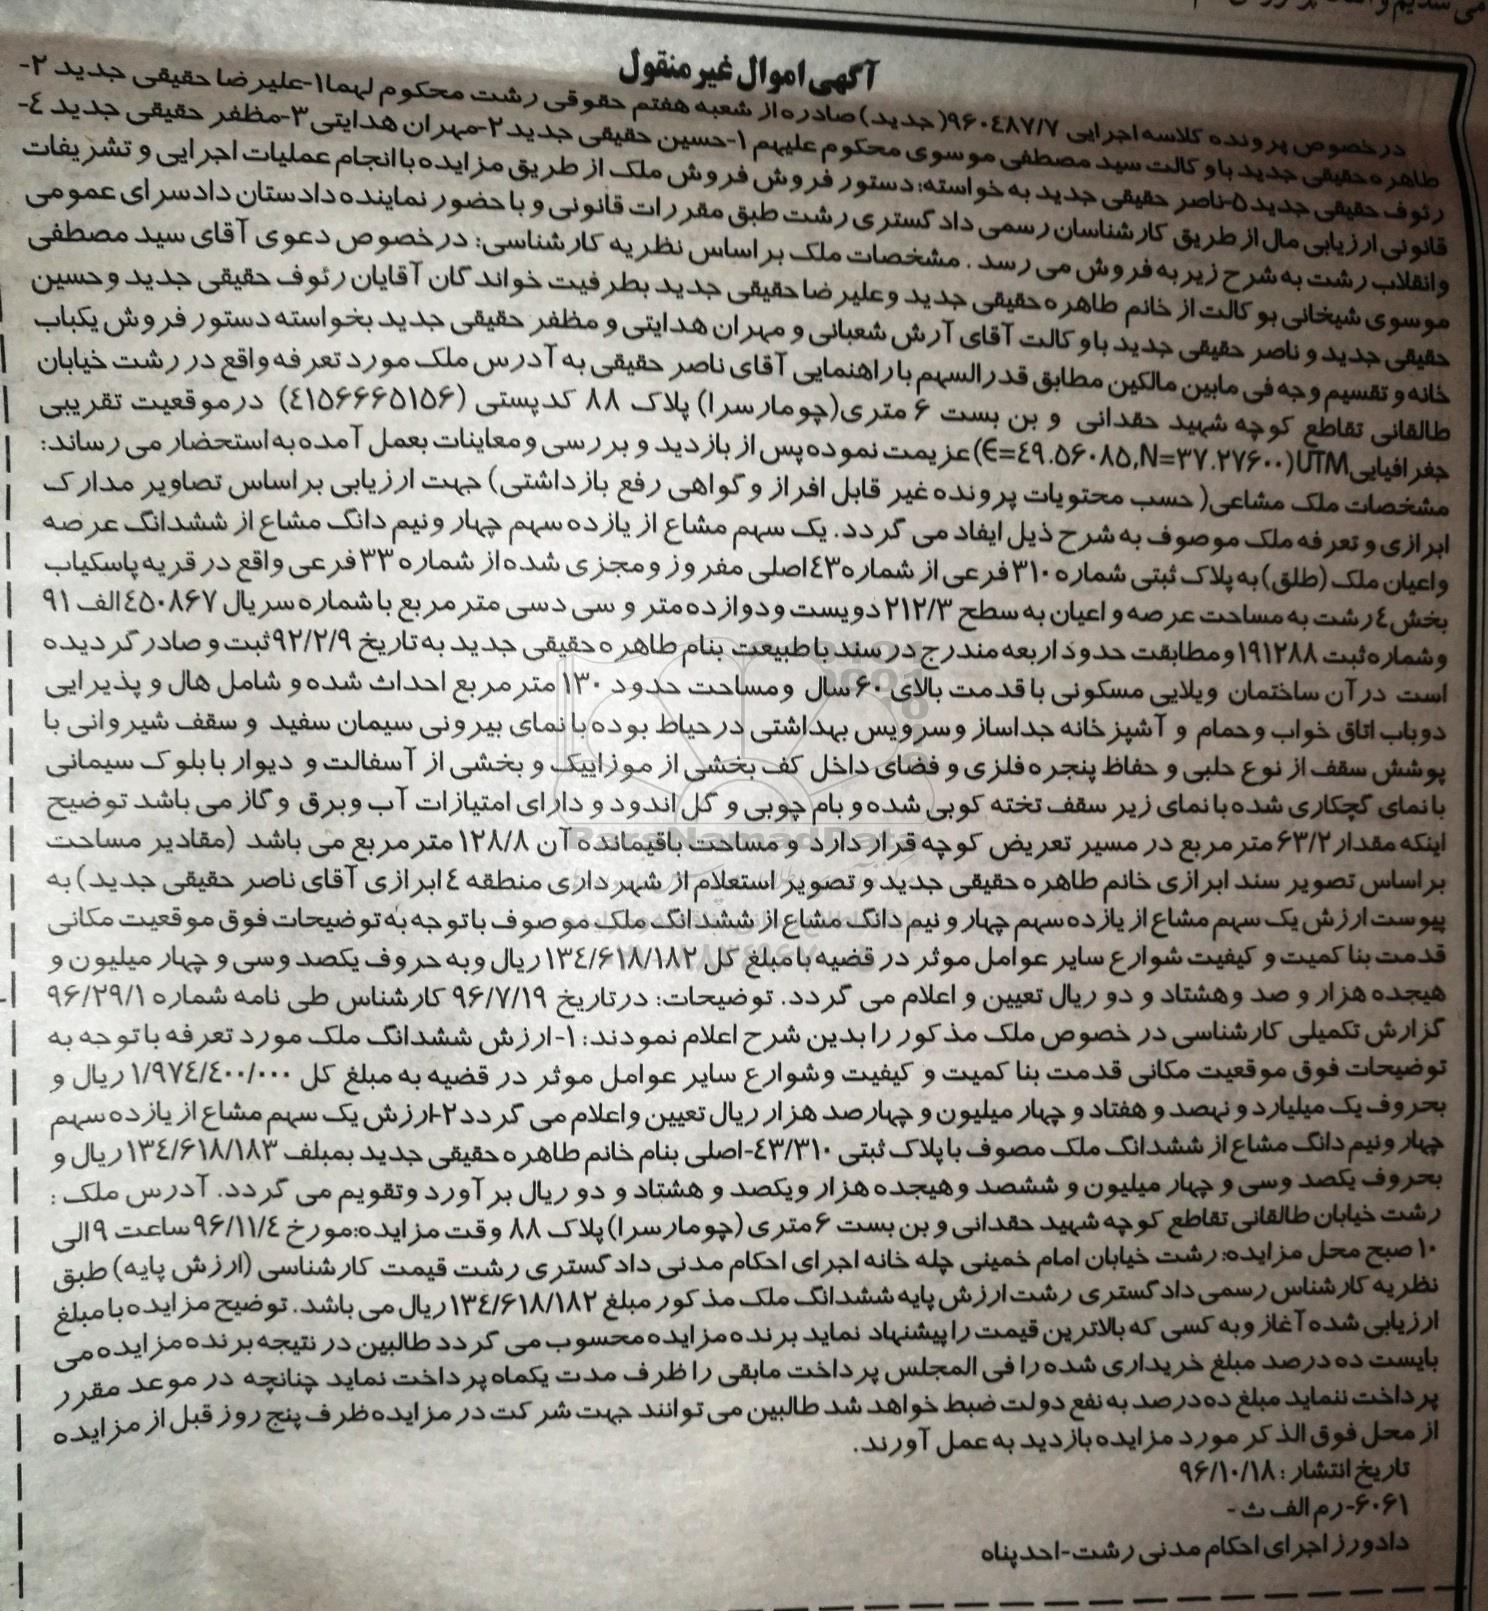 آگهی اموال غیر منقول
درخصوص پرونده کلاسه اجرایی ۹۶۰۴۸۷/۷(جدید) صادره از شعبه هفتم حقوقی رشت محکوم لهما۱-علیرضا حقیقی جدید ۲-
طاهره حقیقی جدید باوکالت سید مصطفی موسوی محکوم علیهم ۱-حسین حقیقی جدید ۲-مهران هدایتی ۳-مظفر حقیقی جدید ٤-
رئوف حقیقی جدید۵-ناصر حقیقی جدید به خواسته: دستور فروش فروش ملک از طریق مزایده با انجام عملیات اجرایی و تشریفات
قانونی ارزیابی مال از طریق کارشناسان رسمی دادگستری رشت طبق مقررات قانونی و با حضور نماینده دادستان دادسرای عمومی
وانقلاب رشت به شرح زیر به فروش می رسد . مشخصات ملک بر اساس نظریه کارشناسی: درخصوص دعوی آقای سید مصطفی
موسوی شیخانی بوکالت از خانم طاهره حقیقی جدید وعلیرضا حقیقی جدید بطرفیت خواندگان آقایان رئوف حقیقی جدید و حسین
حقیقی جدید و ناصر حقیقی جدید باوکالت آقای آرش شعبانی و مهران هدایتی و مظفر حقیقی جدید بخواسته دستور فروش یکباب
خانه و تقسیم وجه فی مابین مالکین مطابق قدرالسهم با راهنمایی آقای ناصر حقیقی به آدرس ملک مورد تعرفه واقع در رشت خیابان
طالقانی تقاطع کوچه شهید حقدانی و بن بست ۶ متری(چومارسرا) پلاک ۸۸ کدپستی (٤۱۵۶۶۶۵۱۵۶) در موقعیت تقریبی
جغرافیایی UTM(E=٤۹.۵۶۰۸۵,N=۳۷.۲۷۶۰۰) عزیمت نموده پس از بازدید و بررسی و معاینات بعمل آمده به استحضار می رساند:
مشخصات ملک مشاعی( حسب محتویات پرونده غیر قابل افراز و گواهی رفع بازداشتی) جهت ارزیابی بر اساس تصاویر مدارک
ابرازی و تعرفه ملک موصوف به شرح ذیل ایفاد می گردد. یک سهم مشاع از یازده سهم چهار ونیم دانگ مشاع از ششدانگ عرصه
واعیان ملک (طلق) به پلاک ثبتی شماره ۳۱۰ فرعی از شماره ٤۳ اصلی مفروز و مجزی شده از شماره ۳۳ فرعی واقع در قریه پاسکیاب
بخش ٤ رشت به مساحت عرصه و اعیان به سطح ۲۱۲/۳ دویست و دوازده متر و سی دسی متر مربع با شماره سریال ٤۵۰۸۶۷الف ۹۱
وشماره ثبت ۱۹۱۲۸۸ ومطابقت حدود اربعه مندرج در سند با طبیعت بنام طاهره حقیقی جدید به تاریخ ۹۲/۲/۹ ثبت و صادر گردیده
است در آن ساختمان ویلایی مسکونی با قدمت بالای ۶۰ سال ومساحت حدود ۱۳۰ متر مربع احداث شده و شامل هال و پذیرایی
دوباب اتاق خواب وحمام و آشپزخانه جداساز وسرویس بهداشتی در حیاط بوده با نمای بیرونی سیمان سفید و سقف شیروانی با
پوشش سقف از نوع حلبی و حفاظ پنجره فلزی و فضای داخل کف بخشی از موزاییک و بخشی از آسفالت و دیوار با بلوک سیمانی
با نمای گچکاری شده با نمای زیر سقف تخته کوبی شده و بام چوبی و گل اندود و دارای امتیازات آب وبرق و گاز می باشد توضیح
اینکه مقدار ۶۳/۲ متر مربع در مسیر تعریض کوچه قرار دارد و مساحت باقیمانده آن ۱۲۸/۸ متر مربع می باشد (مقادیر مساحت
بر اساس تصویر سند ابرازی خانم طاهره حقیقی جدید و تصویر استعلام از شهرداری منطقه ٤ ابرازی آقای ناصر حقیقی جدید) به
پیوست ارزش یک سهم مشاع از یازده سهم چهار و نیم دانگ مشاع از ششدانگ ملک موصوف با توجه به توضیحات فوق موقعیت مکانی
قدمت بنا کمیت و کیفیت شوارع سایر عوامل موثر در قضیه با مبلغ کل ۱۳٤/۶۱۸/۱۸۲ ریال وبه حروف یکصد وسی و چهار میلیون و
هیجده هزار و صد وهشتاد و دو ریال تعیین و اعلام می گردد. توضیحات: در تاریخ ۹۶/۷/۱۹ کارشناس طی نامه شماره ۹۶/۲۹/۱
گزارش تکمیلی کارشناسی در خصوص ملک مذکور را بدین شرح اعلام نمودند: ۱- ارزش ششدانگ ملک مورد تعرفه با توجه به
توضیحات فوق موقعیت مکانی قدمت بنا کمیت و کیفیت وشوارع سایر عوامل موثر در قضیه به مبلغ کل ۱/۹۷٤/٤۰۰/۰۰۰ ریال و
بحروف یک میلیارد و نهصد و هفتاد و چهار میلیون و چهارصد هزار ریال تعیین واعلام می گردد ۲-ارزش یک سهم مشاع از یازده سهم
چهار ونیم دانگ مشاع از ششدانگ ملک مصوف با پلاک ثبتی ٤۳/۳۱۰-اصلی بنام خانم طاهره حقیقی جدید بمبلف ۱۳٤/۶۱۸/۱۸۳ ریال و
بحروف یکصد وسی و چهار میلیون و ششصد وهیجده هزار ویکصد و هشتاد و دو ریال بر آورد وتقویم می گردد. آدرس ملک :
رشت خیابان طالقانی تقاطع کوچه شهید حقدانی و بن بست ۶ متری (چومارسرا) پلاک ۸۸ وقت مزایده:مورخ ۹۶/۱۱/٤ ساعت ۹ الی
۱۰ صبح محل مزایده: رشت خیابان امام خمینی چله خانه اجرای احکام مدنی دادگستری رشت قیمت کارشناسی (ارزش پایه) طبق
نظریه کارشناس رسمی دادگستری رشت ارزش پایه ششدانگ ملک مذکور مبلغ ۱۳٤/۶۱۸/۱۸۲ ریال می باشد. توضیح مزایده با مبلغ
ارزیابی شده آغاز وبه کسی که بالاترین قیمت را پیشنهاد نماید برنده مزایده محسوب می گردد طالبین در نتیجه برنده مزایده می
بایست ده درصد مبلغ خریداری شده را فی المجلس پرداخت مابقی را ظرف مدت یکماه پرداخت نماید چنانچه در موعد مقرر
پرداخت ننماید مبلغ ده درصد به نفع دولت ضبط خواهد شد طالبین می توانند جهت شرکت در مزایده ظرف پنج روز قبل از مزایده
از محل فوق الذکر مورد مزایده بازدید به عمل آورند.
تاریخ انتشار : ۹۶/۱۰/۱۸
۶۰۶۱-رم الف ث -
دادورز اجرای احکام مدنی رشت-احدپناه
ParsNamadData